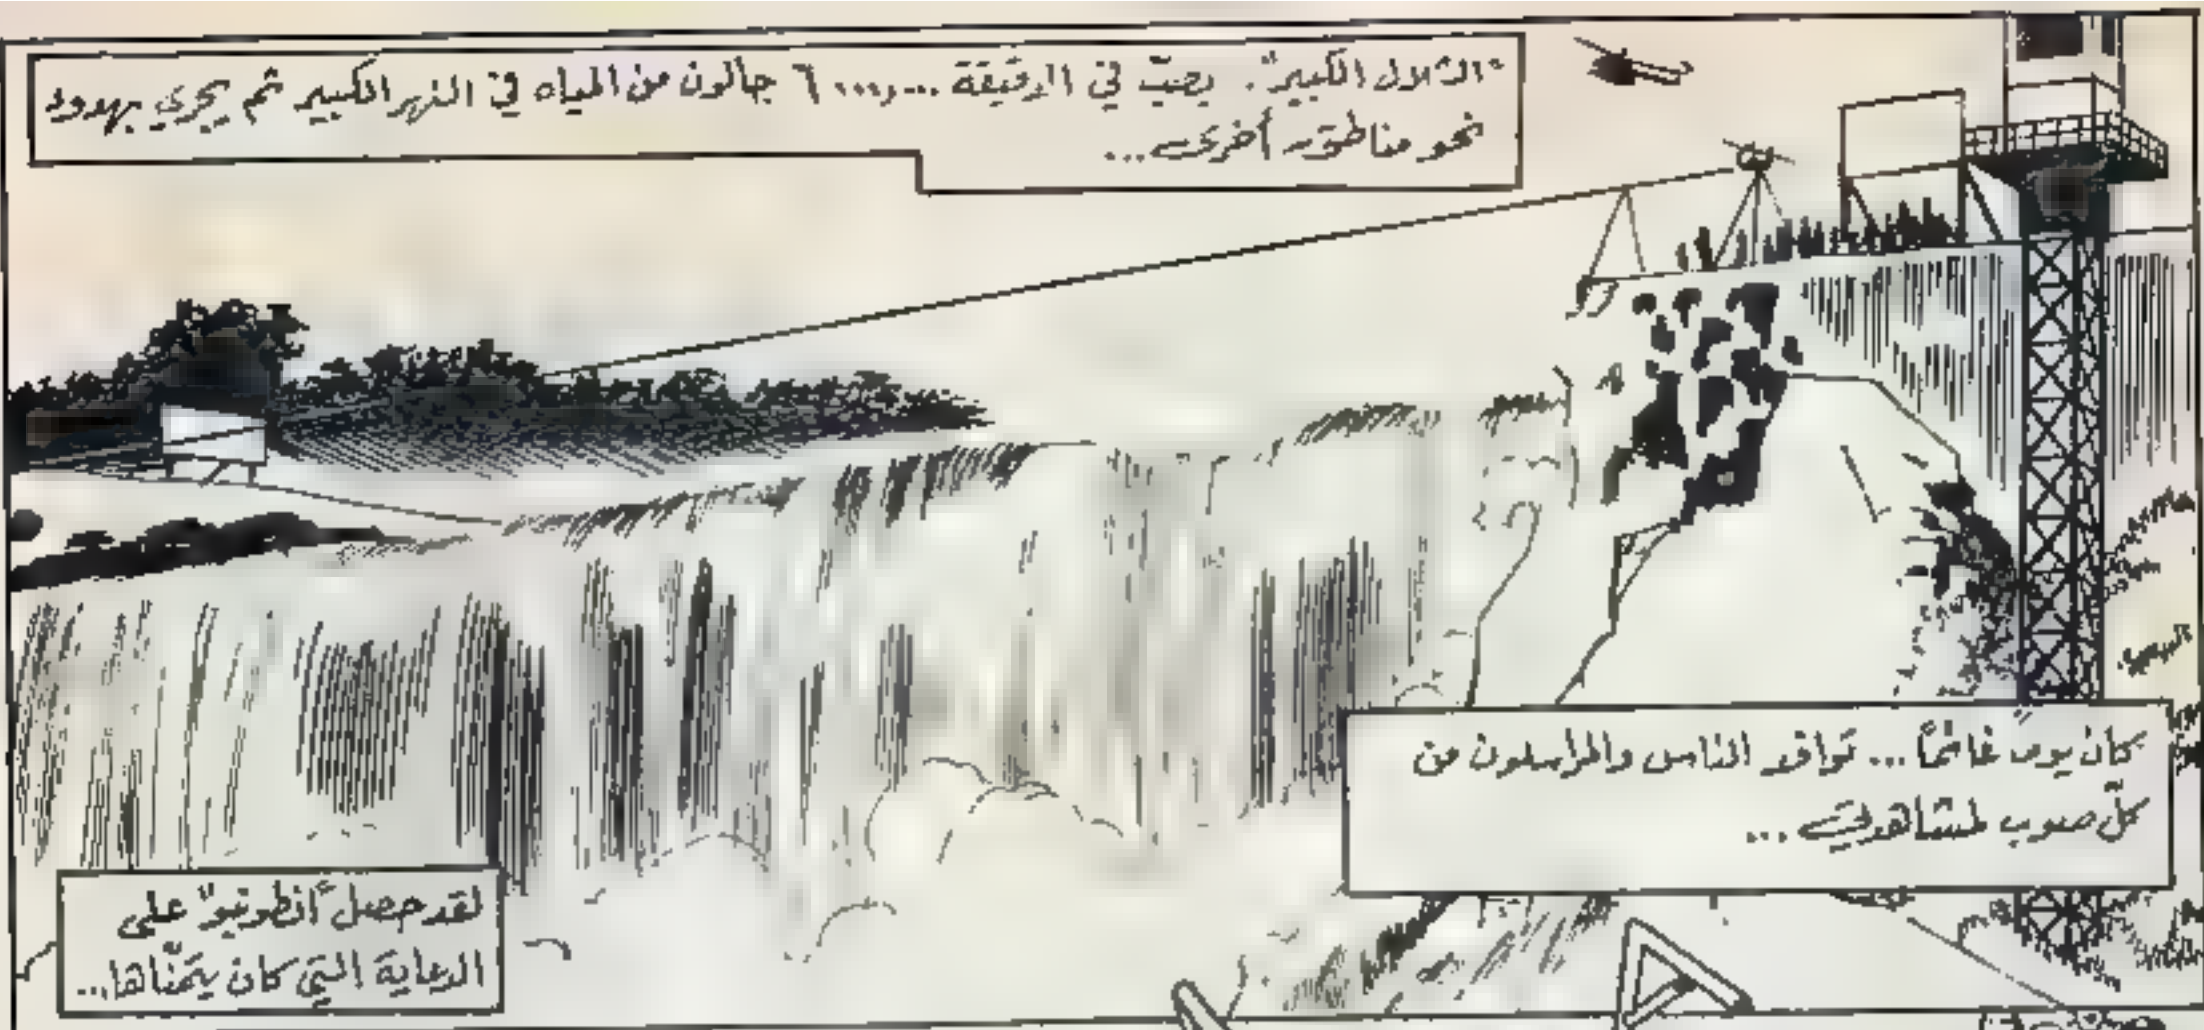 "الشلال الكبير". يصبّ في الدقيقة ٦٠٠٠,٠٠٠ جالون من المياه في النهر الكبير ثم يجري بهدوء
نحو مناطق أخرى...
كان يومًا غائمًا... توافد الناس والمراسلون من
كلّ صوب لمشاهدتي...
لقد حصل "أنطونيو" على
الدعاية التي كان يتمنّاها...